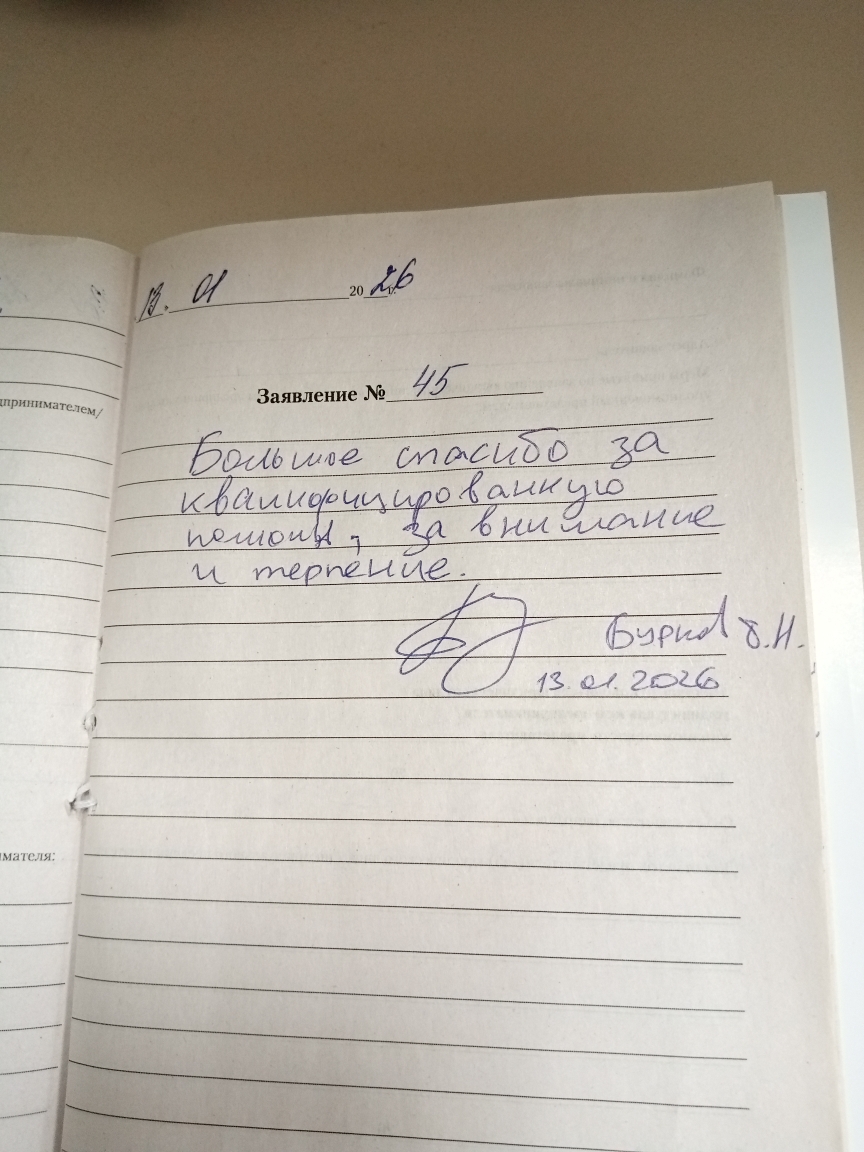 13. 01 2026 г.
дпринимателем/
Заявление № 45
Большое спасибо за
квалифицированную
помощь, за внимание
и терпение.
Бурков Б.Н.
13.01.2026
имателя: